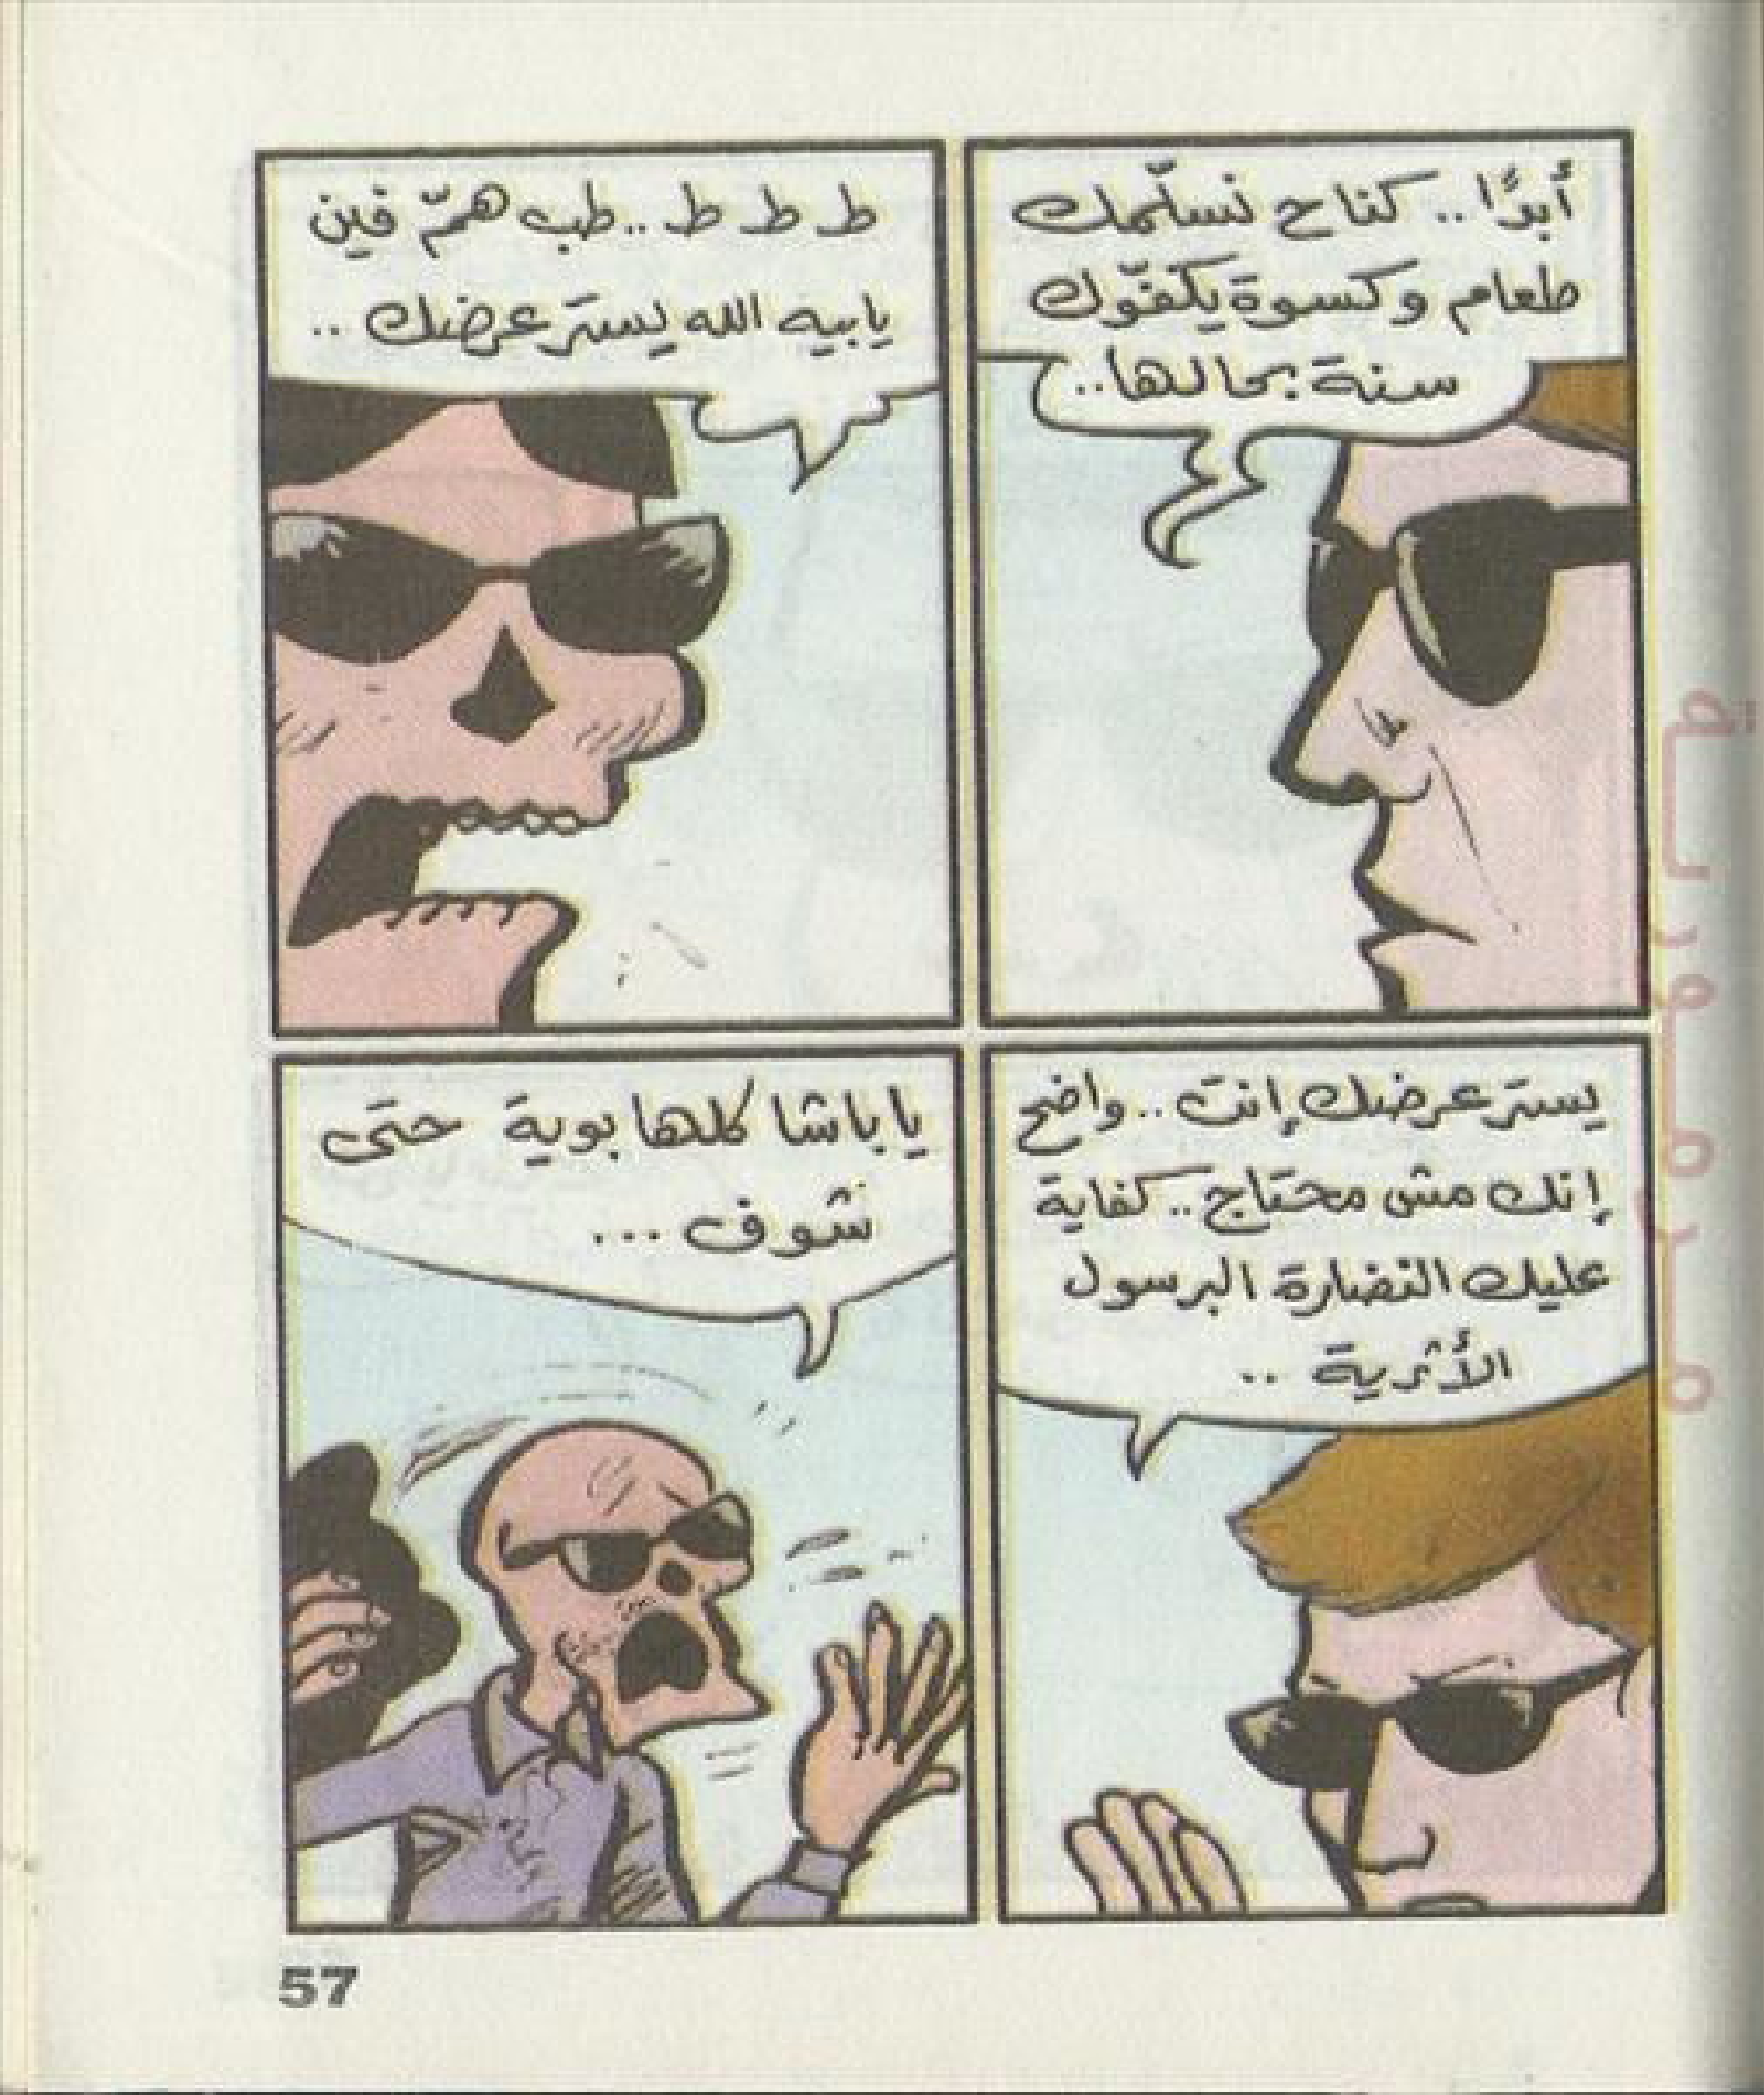 أبدًا .. كنا ح نسلّمك
طعام وكسوة يكفّوك
سنة بحالها ..
ط ط ط .. طب همّ فين
يا بيه الله يستر عرضك ..
يستر عرضك إنت .. واضح
إنك مش محتاج .. كفاية
عليك النضارة البرسول
الأثرية ..
يا باشا كلها بوية حتى
شوف ...
57